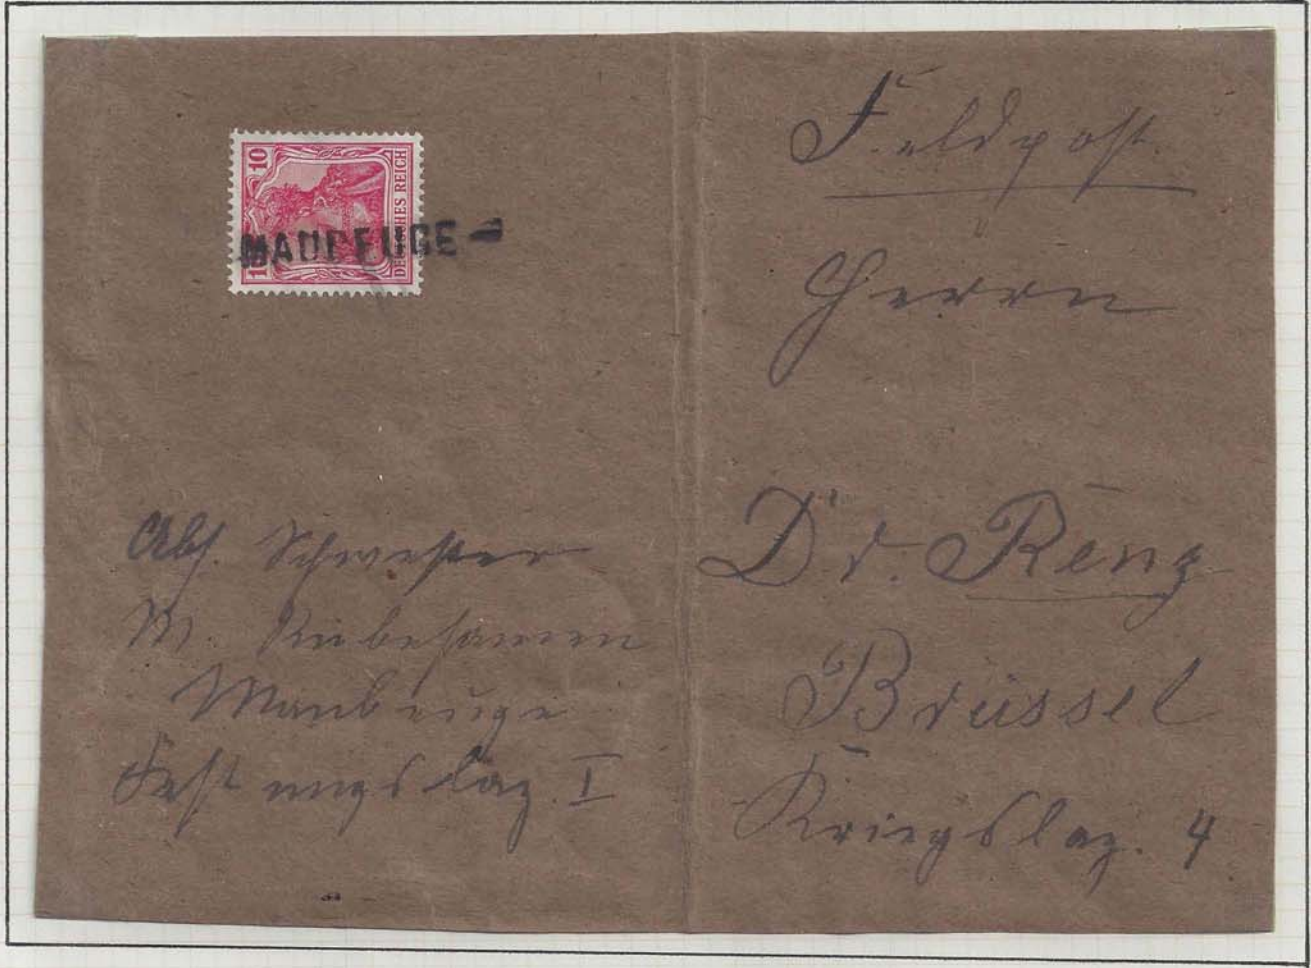 10
DEUTSCHES REICH
10
MAUBEUGE
Feldpost.
Herrn
Dr. Renz
Brüssel
Kriegslaz. 4
Abs. Schwester
M. Rübesamen
Maubeuge
Festungslaz. I